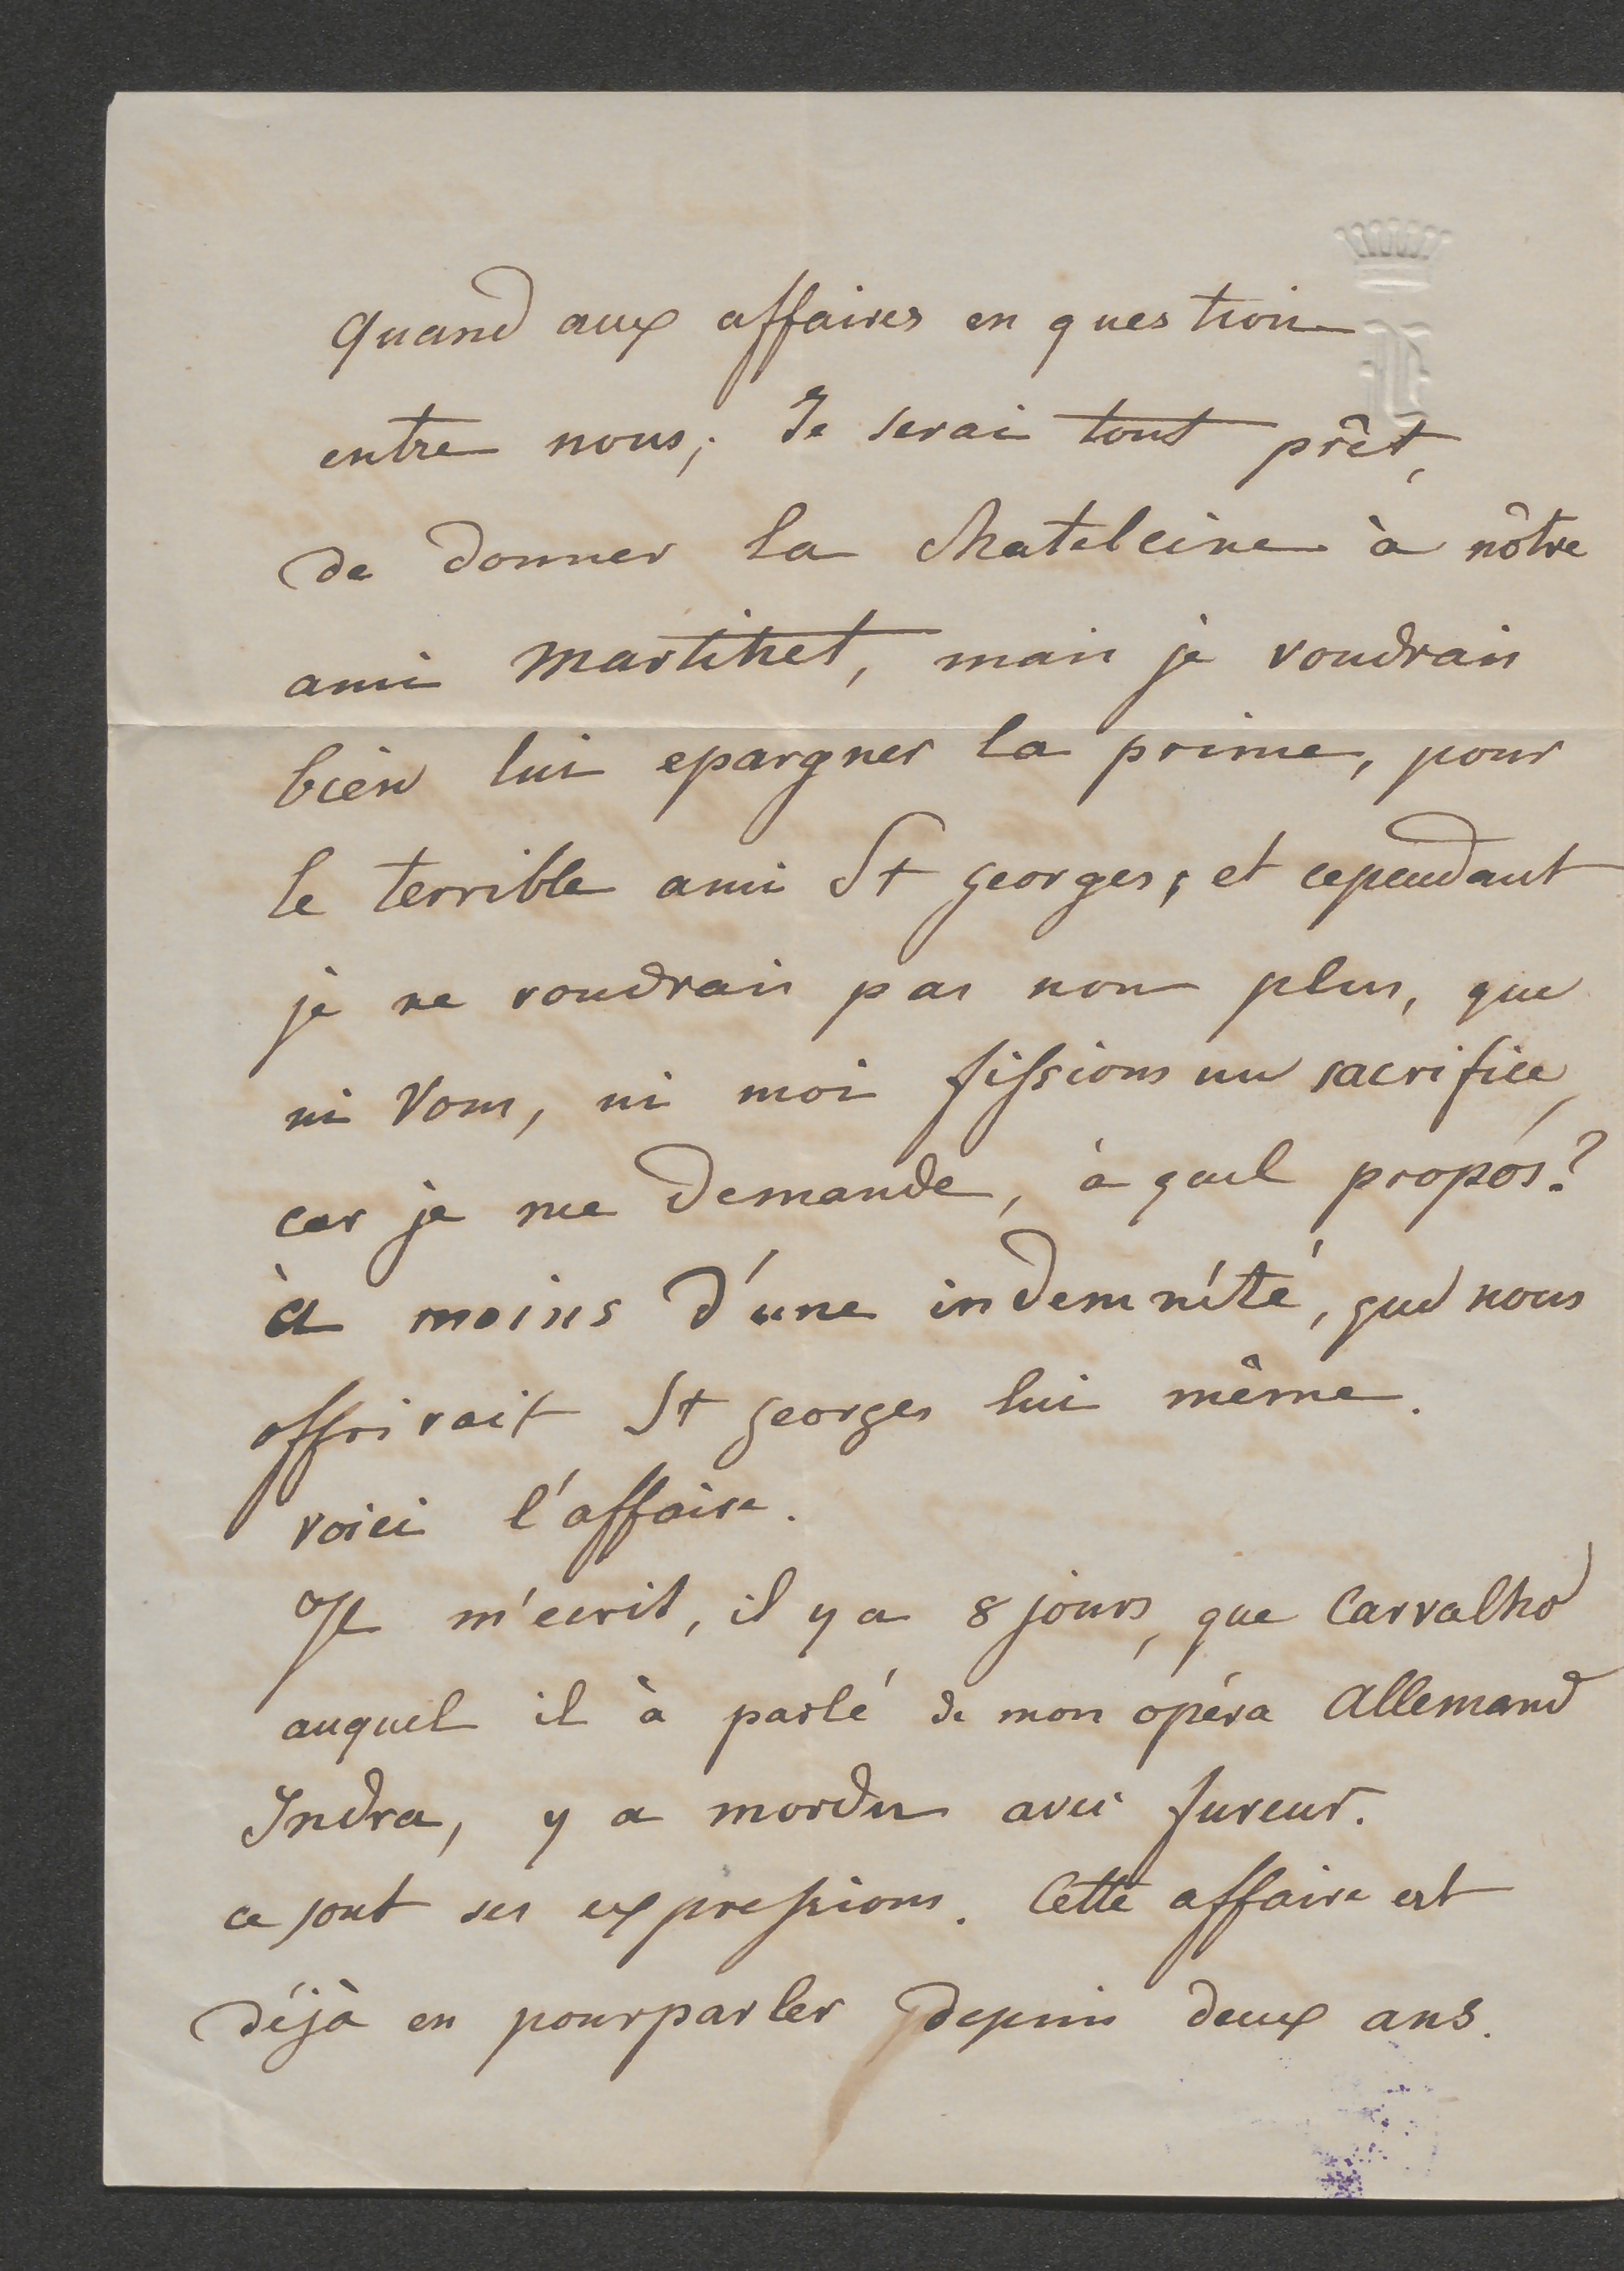 Quand aux affaires en question
entre nous; Je serai tout prêt,
de donner la Chateleine à nôtre
ami Martinet, mais je voudrais
bien lui epargner la prime, pour
le terrible ami St Georges, et cependant
je ne voudrais pas non plus, que
ni Vous, ni moi fissions un sacrifice,
car je me demande, à quel propós?
à moins d'une indemnité, que nous
offrirait St Georges lui même.
voici l'affaire.
Il m'ecrit, il y a 8 jours, que Carvalho
auquel il à parlé de mon opéra Allemand
Indra, y a mordu avec fureur.
ce sont ses expressions. Cette affaire est
déjà en pourparler depuis deux ans.